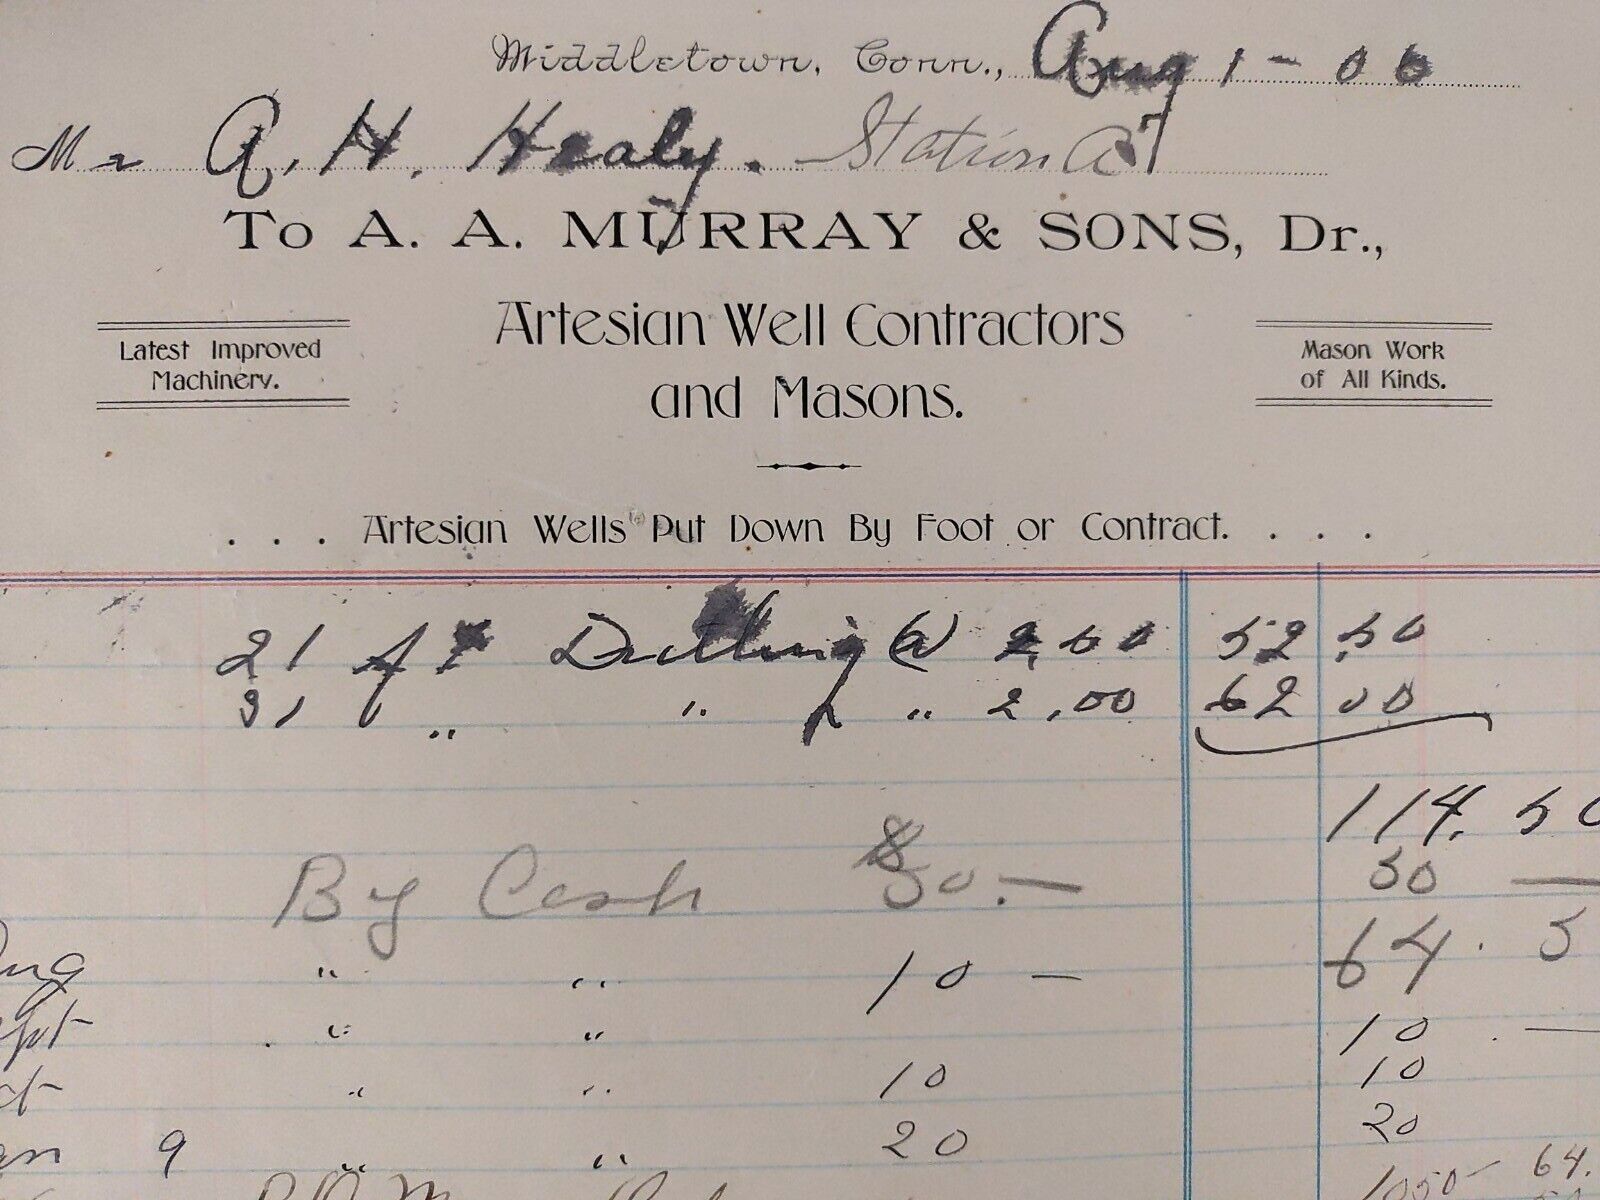 Middletown, Conn., Aug 1 - 06
Mr A. H. Healy. Station A
To A. A. MURRAY & SONS, Dr.,
Artesian Well Contractors
and Masons.
Latest Improved
Machinery.
Mason Work
of All Kinds.
. . . Artesian Wells Put Down By Foot or Contract. . . .
21 ft Drilling @ 2.50 52.50
31 " " " 2.00 62 00
114.50
By Cash $50.— 50 —
64. 5
Aug " " 10 —
Sept " " 10. —
" " 10 10
9 " " 20 20
1050 — 64.